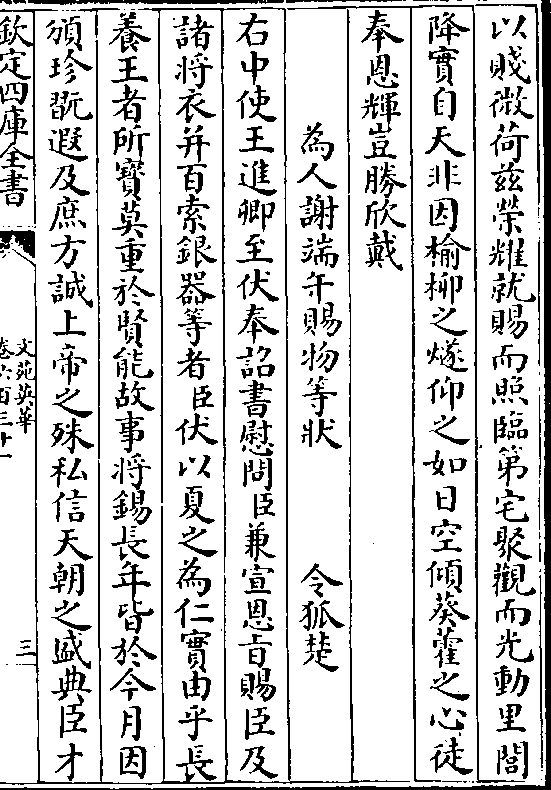 以賤微荷兹榮耀就賜而照臨第宅聚觀而光動里閭
降實自天非因榆柳之燧仰之如日空傾葵藿之心徒
奉恩輝豈勝欣戴
為人謝端午賜物等狀 令狐楚
右中使王進卿至伏奉詔書慰問臣兼宣恩旨賜臣及
諸將衣并百索銀器等者臣伏以夏之為仁實由乎長
養王者所寳莫重於賢能故事將錫長年皆於今月因
頒珍翫遐及庶方誠上帝之殊私信天朝之盛典臣才
欽定四庫全書
文苑英華
卷六百三十一
三